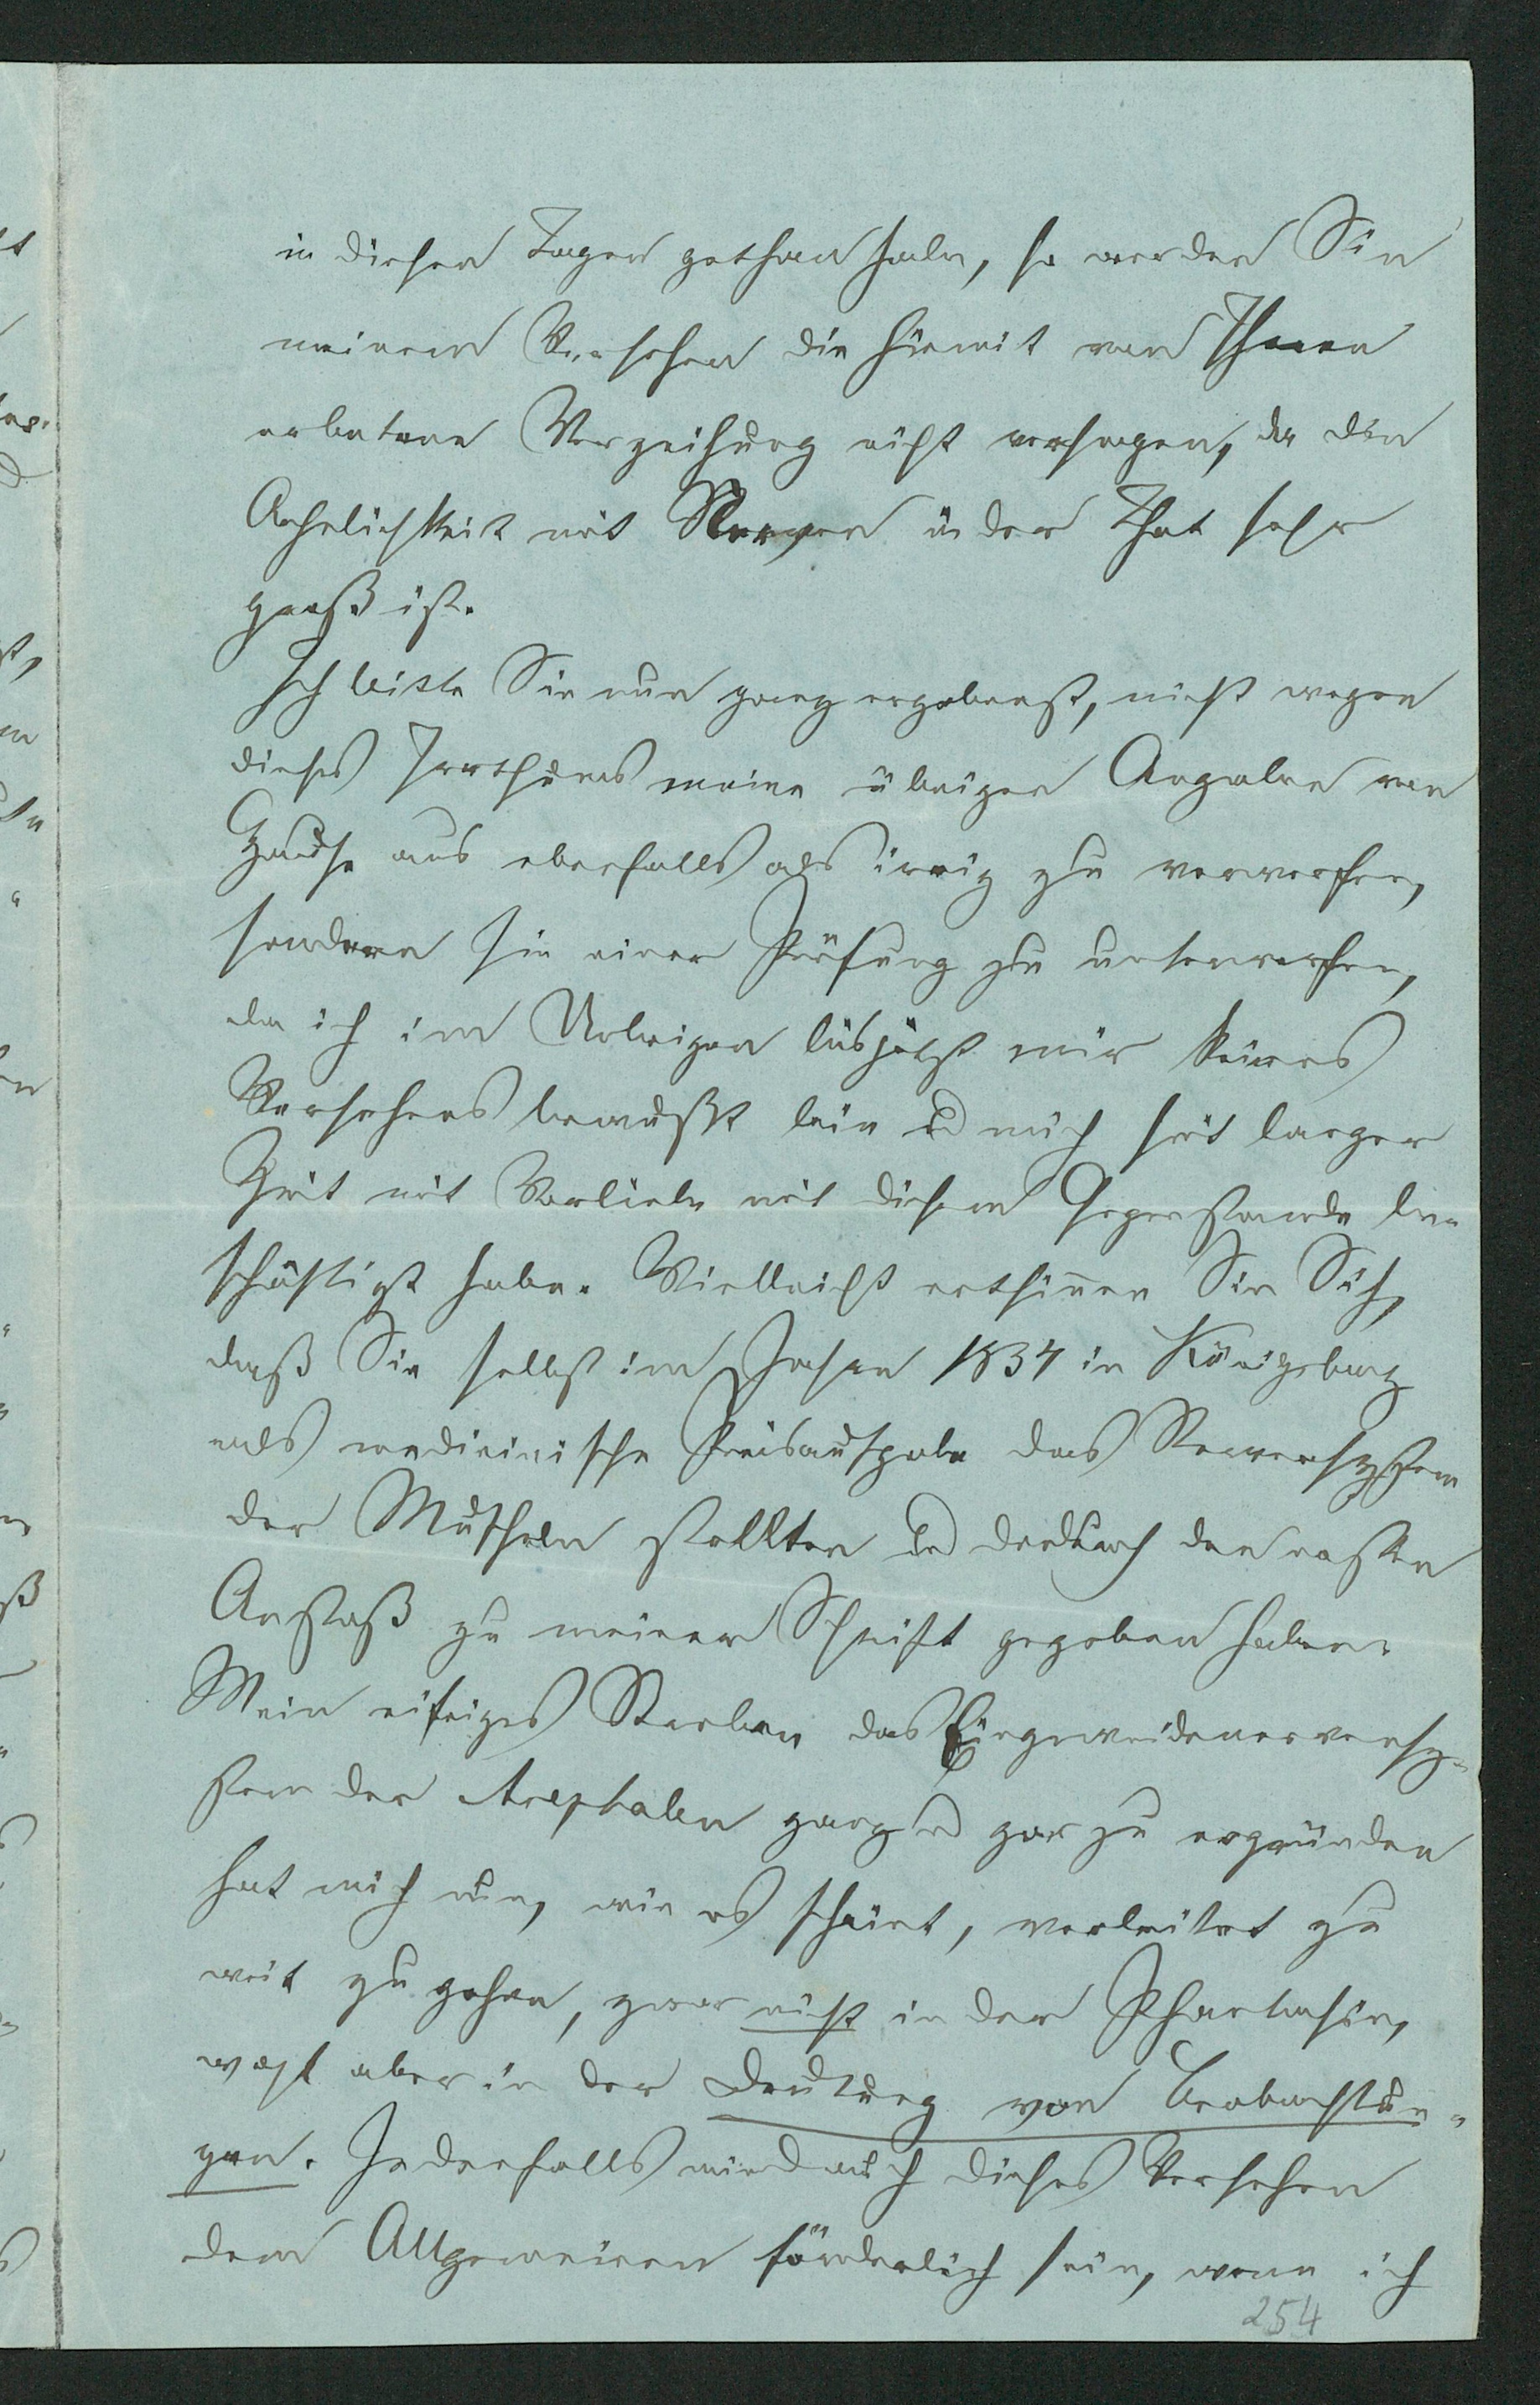 in diesen Tagen gethan habe, so werden Sie
meinem Versehen die hiermit von Ihnen
erbetene Verzeihung nicht versagen, da die
Aehnlichkeit mit Nerven in der That sehr
groß ist.
Ich bitte Sie nun ganz ergebenst, nicht wegen
dieses Irrthums meine übrigen Angaben von
Hause aus ebenfalls als irrig zu verwerfen,
sondern sie einer Prüfung zu unterwerfen,
da ich im Uebrigen bis jetzt mir keines
Versehens bewußt bin u mich seit langer
Zeit mit Vorliebe mit diesem Gegenstande be-
schäftigt habe. Vielleicht entsinnen Sie Sich,
daß Sie selbst im Jahre 1834 in Königsberg
als medicinische Preisaufgabe das Nervensystem
der Muscheln stellten u dadurch den ersten
Anstoß zu meiner Schrift gegeben haben.
Mein eifriges Streben das Eingeweidenervensy-
stem der Acephalen ganz u gar zu ergründen
hat mich nun, wie es scheint, verleitet zu
weit zu gehen, zwar nicht in der Phantasie,
wohl aber in der Deutung von Beobachtun-
gen. Jedenfalls wird auch dieses Versehen
dem Allgemeinen förderlich sein, wenn ich
254